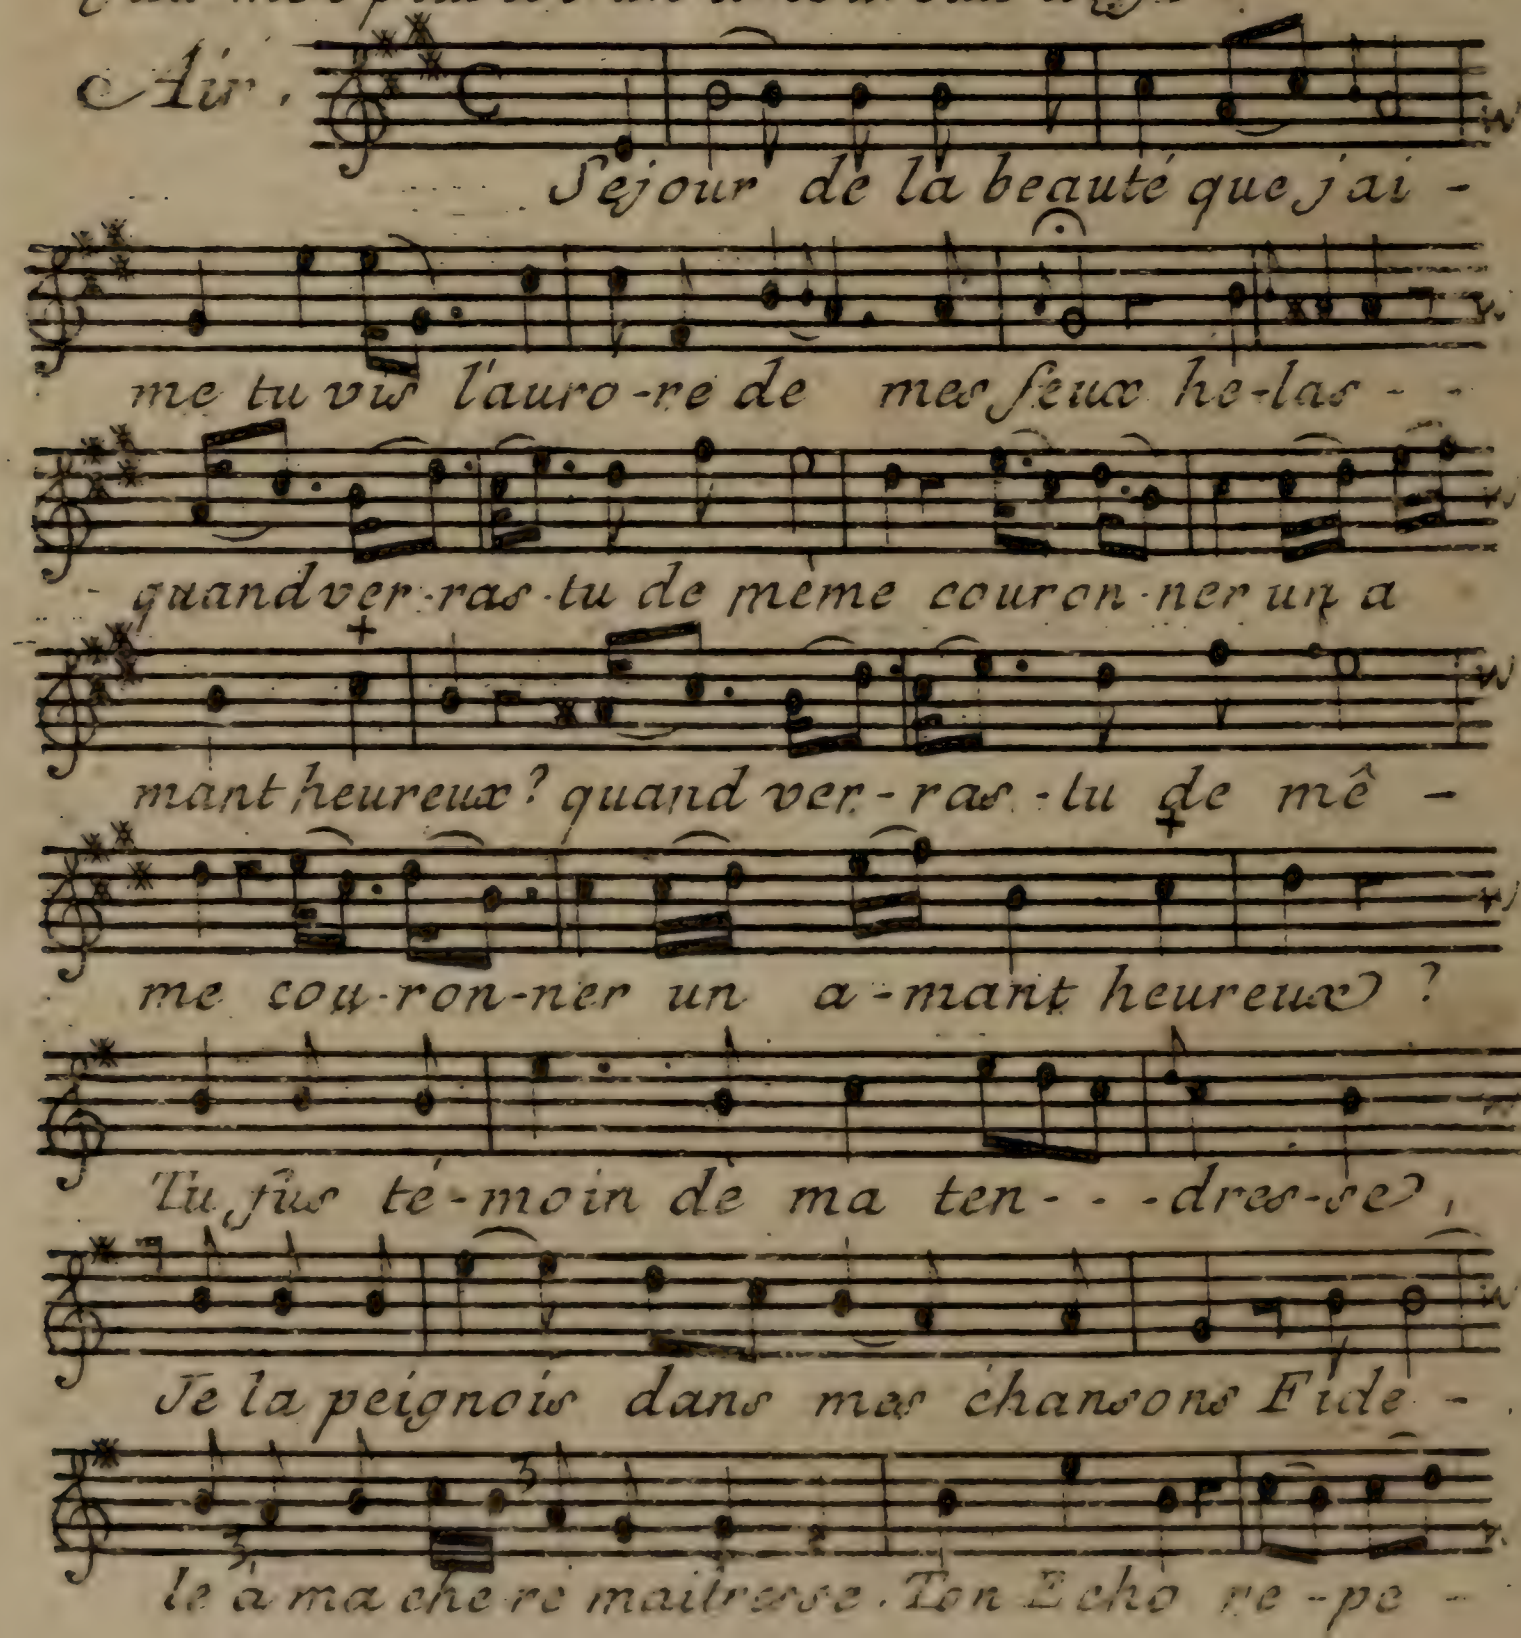 Air.
Sejour de la beauté que j'ai -
me tu vis l'auro-re de mes feux he-las - -
- quand ver-ras-tu de même couron-ner un a
mant heureux? quand ver-ras-tu de mê -
me cou-ron-ner un a-mant heureux?
Tu fus té-moin de ma ten- - -dres-se,
Je la peignois dans mes chansons Fide -
le à ma chere maitresse. Ton Echo re-pe -